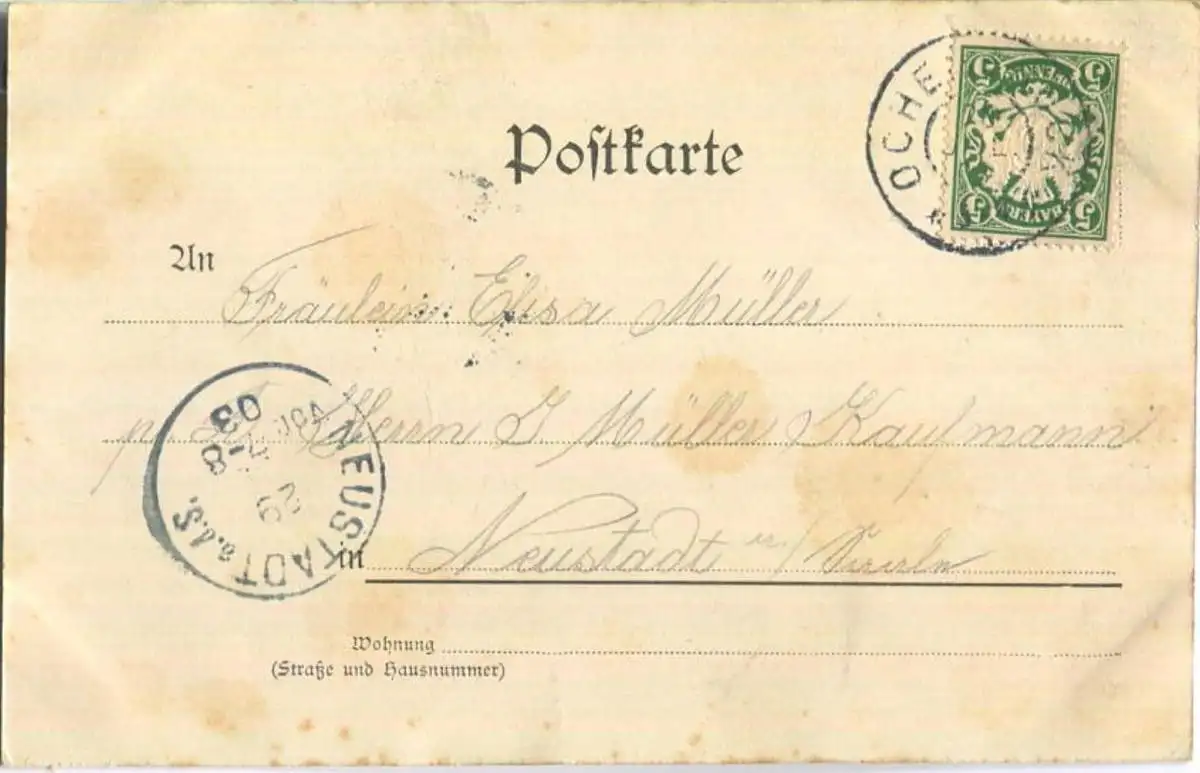 Postkarte
OCHE
5 5
PFENNIG
BAYERN
5 5
An Fräulein Elisa Müller
Herrn J Müller Kaufmann
NEUSTADT a.d.S.
29
7-8
03
in Neustadt
Wohnung
(Straße und Hausnummer)